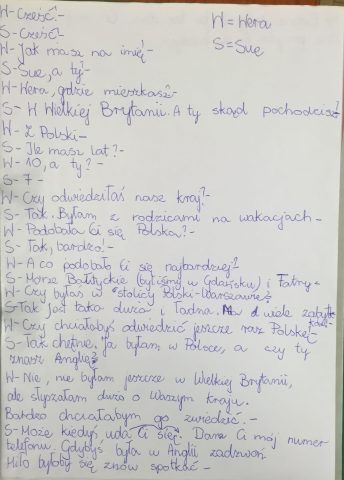 W-Cześć!-
W=Wera
S-Cześć!-
S=Sue
W-Jak masz na imię?-
S-Sue, a ty?-
W-Wera, gdzie mieszkasz?-
S-W Wielkiej Brytanii. A ty skąd pochodzisz?
W-Z Polski-
S-Ile masz lat?-
W-10, a ty?-
S-7-
W-Czy odwiedziłaś nasz kraj?-
S-Tak. Byłam z rodzicami na wakacjach-
W-Podobała Ci się Polska?-
S-Tak, bardzo!-
W-A co podobało Ci się najbardziej?
S-Morze Bałtyckie (byliśmy w Gdańsku) i Tatry-
W-Czy byłaś w stolicy Polski-Warszawie?
S-Tak jest taka duża i ładna. Ma wiele zabytków-
W-Czy chciałabyś odwiedzić jeszcze raz Polskę?
S-Tak chętnie. Ja byłam w Polsce, a czy ty
znasz Anglię?
W-Nie, nie byłam jeszcze w Wielkiej Brytanii,
ale słyszałam dużo o Waszym kraju.
Bardzo chciałabym go zwiedzić.-
S-Może kiedyś uda Ci się. Dam Ci mój numer
telefonu. Gdybyś była w Anglii zadzwoń.
Miło byłoby się znów spotkać-